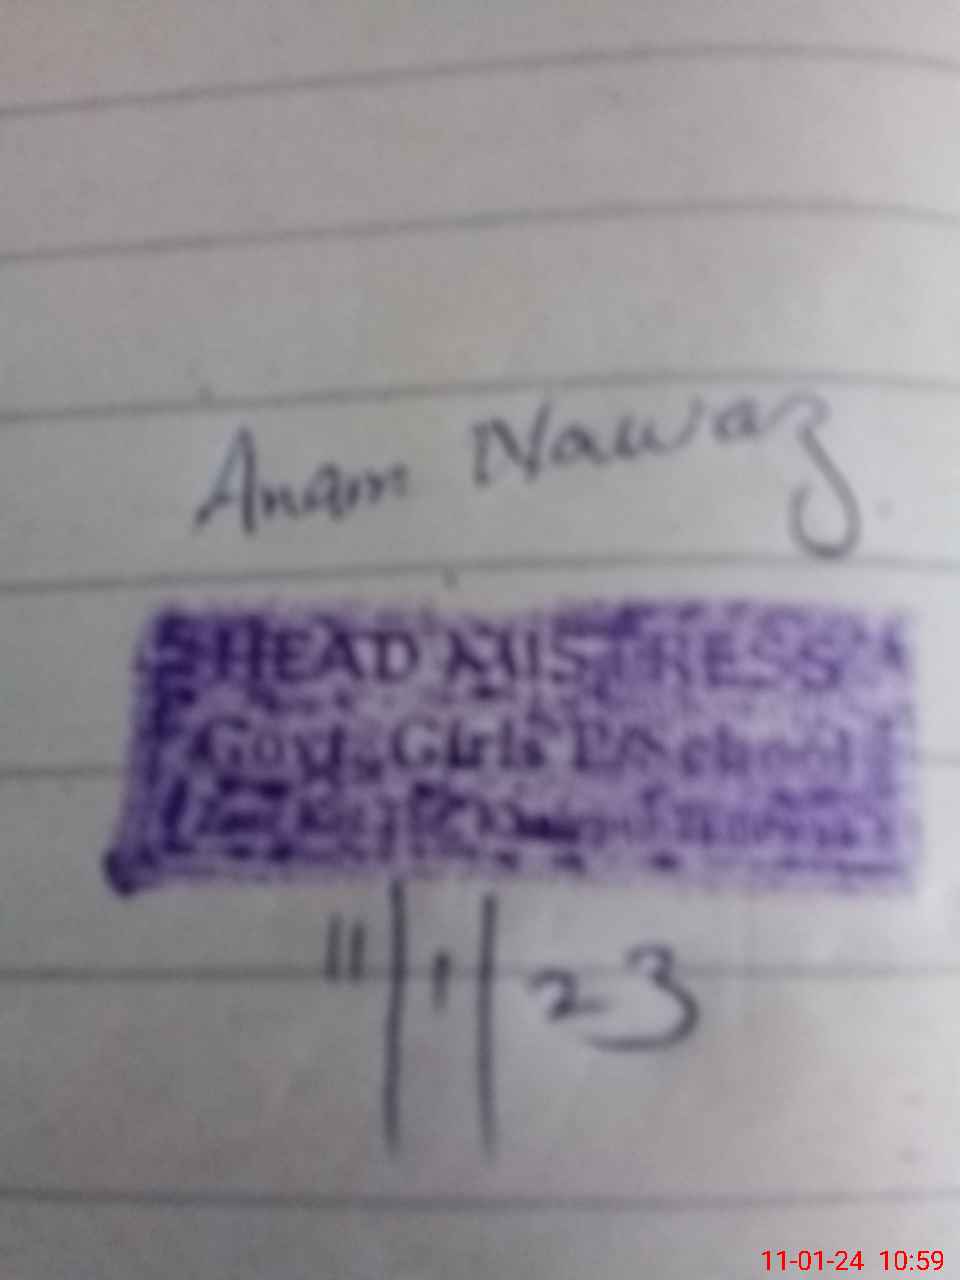 Anam Nawaz
HEAD MISTRESS
Govt. Girls P/School
11/1/23
11-01-24 10:59